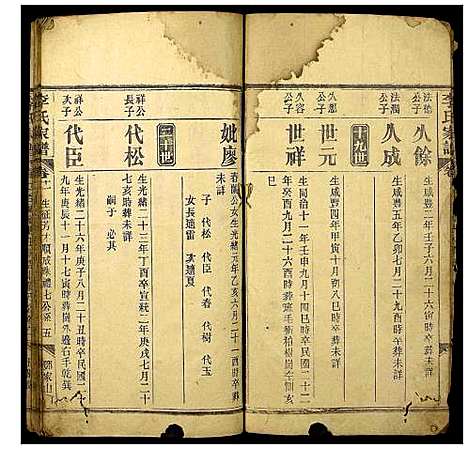 李氏家譜
法濤公子
久餘
生咸豐二年壬子六月二十六寅時卒葬未詳
法潤公子
久成
生咸豐五年乙卯七月二十九酉時卒葬未詳
十九世
久都公子
世元
生咸豐四年甲寅十月初八巳時卒葬未詳
久容公子
世祥
生同治十一年壬申九月十四亥時卒民國二十二年癸酉九月二十六
妣廖
春 公女生光緒元年乙亥六月二十一酉時卒葬未詳
子 代松 代臣 代春 代樹 代玉
女長適雷 次適夏
二十世
祥公長子
代松
生光緒二十三年丁酉卒宣統二年庚戌七月二十七亥時葬未詳
嗣子 必其
祥公次子
代臣
生光緒二十六年庚子八月二十丑時卒民國二十九年庚辰十一月十七寅時葬 樹外邊右手乾巽
李氏家譜
卷十一
生征芳才順成疾禮七公系
五
鄧家山